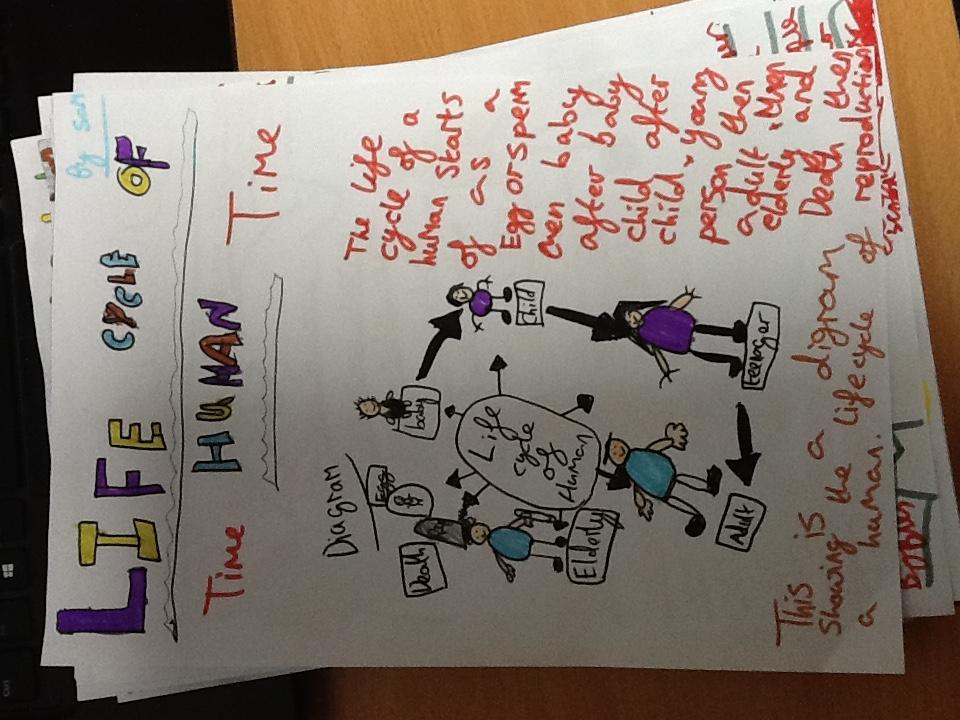 by sam
LIFE CYCLE OF
HUMAN
Time
Time
Diagram
The life
cycle of a
human starts
of as a
Egg or sperm
then baby
after baby
child after
child, young
person then
adult, then
elderly and
Death then
reproduction
Egg
baby
Child
teenager
Adult
Eldorly
Death
Life
cycle
of
Human
This is a digram
Showing the life cycle of
a human.